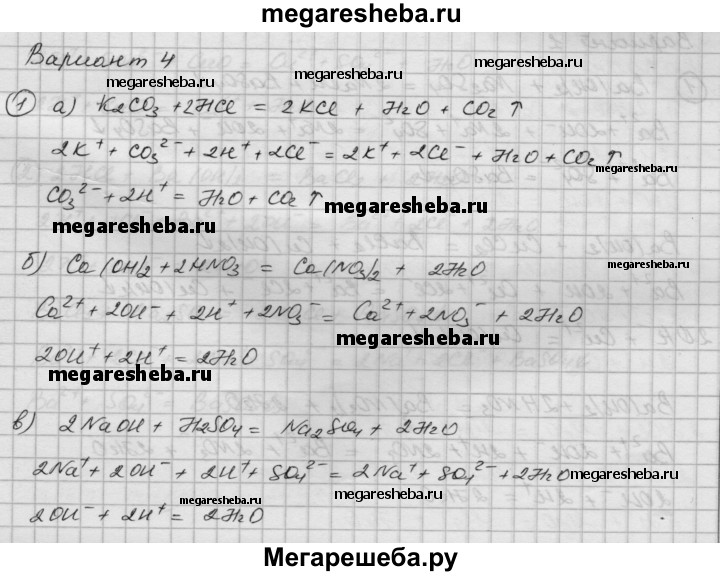 megaresheba.ru
Вариант 4
megaresheba.ru megaresheba.ru megaresheba.ru
① а) K₂CO₃ + 2HCl = 2KCl + H₂O + CO₂ ↑
2K⁺ + CO₃²⁻ + 2H⁺ + 2Cl⁻ = 2K⁺ + 2Cl⁻ + H₂O + CO₂ ↑
CO₃²⁻ + 2H⁺ = H₂O + CO₂ ↑
megaresheba.ru megaresheba.ru
б) Ca(OH)₂ + 2HNO₃ = Ca(NO₃)₂ + 2H₂O
Ca²⁺ + 2OH⁻ + 2H⁺ + 2NO₃⁻ = Ca²⁺ + 2NO₃⁻ + 2H₂O
megaresheba.ru
2OH⁺ + 2H⁺ = 2H₂O
megaresheba.ru
в) 2NaOH + H₂SO₄ = Na₂SO₄ + 2H₂O
2Na⁺ + 2OH⁻ + 2H⁺ + SO₄²⁻ = 2Na⁺ + SO₄²⁻ + 2H₂O
megaresheba.ru megaresheba.ru megaresheba.ru
2OH⁻ + 2H⁺ = 2H₂O
Мегарешеба.ру